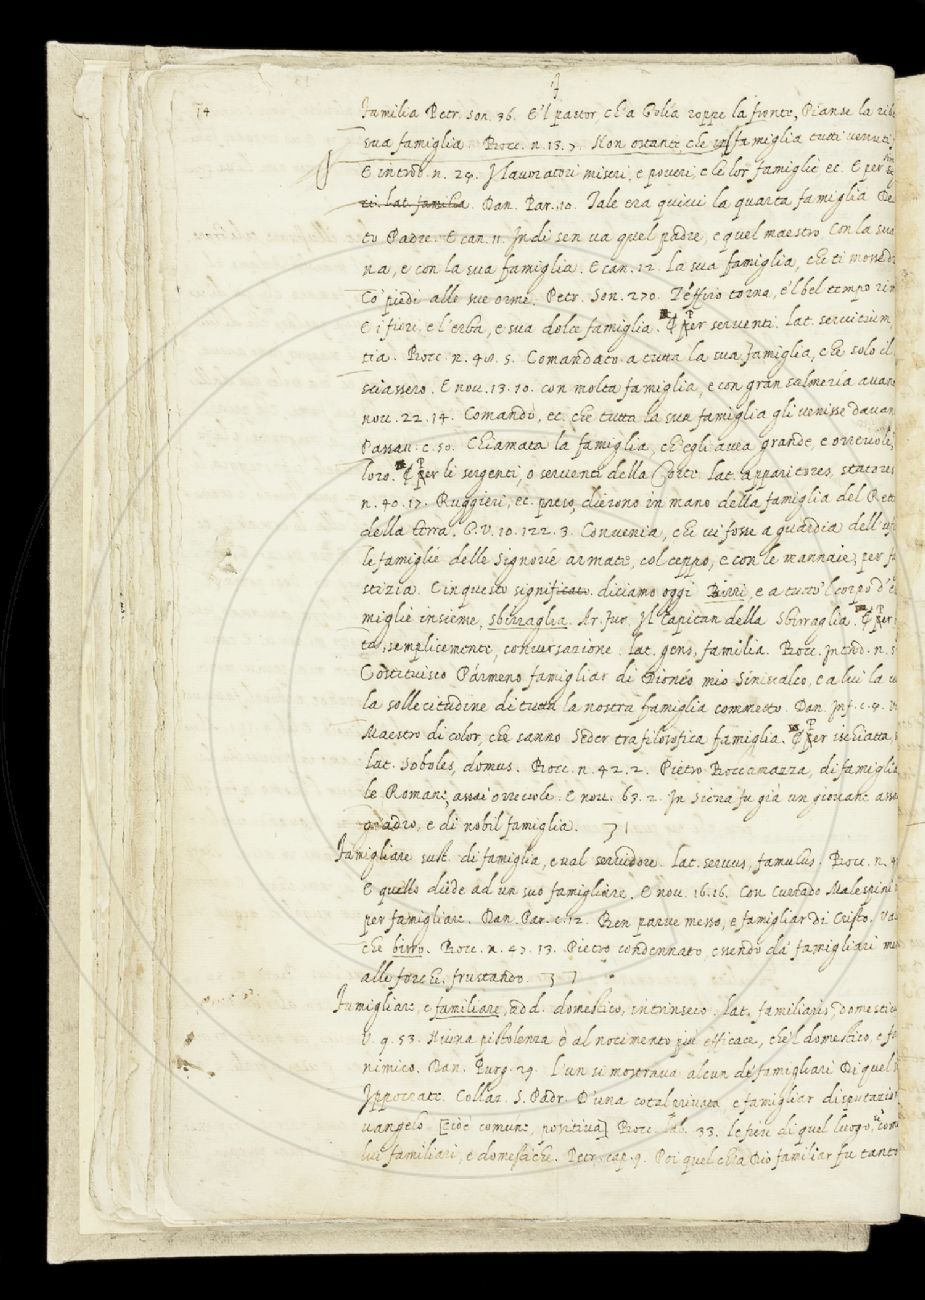 14
Familia Petr. son. 36. E'l pastor ch'a Golía roppe la fronte, Pianse la
sua famiglia. Bocc. n. 13. 7. Non ostante che in famiglia tutti venuti
E introd. n. 24. I lavoratori miseri, e poveri, e le lor famiglie, ec. E per
ti. Lat. familia. Dan. Par. 10. Tale era quivi la quarta famiglia
to Padre. E can. 11. Indi sen va quel padre, e quel maestro Con la sua
na, e con la sua famiglia. E can. 12. La sua famiglia, che si mosse
Co' piedi alle sue orme. Petr. Son. 270. Zeffiro torna, e'l bel tempo
E i fiori, e l'erba, e sua dolce famiglia. ¶ Per serventi. Lat. servitium
tia. Bocc. n. 48. 5. Comandato a tutta la sua famiglia, che solo il
sciassero. E nov. 13. 10. con molta famiglia, e con gran salmería
nov. 22. 14. Comandò, ec. che tutta la sua famiglia gli venisse
Passav. c. 50. Chiamata la famiglia, ch'egli avea grande, e orrevole,
loro. ¶ Per li sergenti, o serventi della Corte. Lat. apparitores,
n. 40. 17. Ruggieri, ec. preso, dierono in mano della famiglia del
della terra. G. V. 10. 122. 3. Convenía, che vi fosse a guardia
le famiglie delle Signoríe armate, col ceppo, e con le mannaie, per
stizia. Cinquesto significato diciamo oggi Birri, e a tutto'l corpo
miglie insieme, Sbirraglia. Ar. Fur. Il Capitan della Sbirraglia. ¶ Per
ta, semplicemente, conversazione. Lat. gens, familia. Bocc. Introd. n.
Costituisco Pármeno famigliar di Dionéo mio Siniscalco, e a lui la
la sollecitudine di tutta la nostra famiglia commetto. Dan. Inf. c. 4.
Maestro di color, che sanno Seder tra filosofica famiglia. ¶ Per ischiatta,
Lat. Soboles, domus. Bocc. n. 42. 2. Pietro Boccamazza, di famiglia
le Romane, assai orrevole. E nov. 63. 2. In Siena fu già un giovane
giadro, e di nobil famiglia.
Famigliare sust. di famiglia, e val servidore. Lat. servus, famulus. Bocc. n.
E quello diede ad un suo famigliare. E nov. 16. 16. Con Currado Malespini
per famigliare. Dan. Par. c. 12. Ben parve messo, e famigliar di Cristo.
che birro. Bocc. n. 47. 13. Pietro condennato, essendo da' famigliari
alle forche frustando.
Famigliare, e familiare, add. domestico, intrinseco. Lat. familiaris,
V. 9. 53. Niuna pistolenza è al nocimento più efficace, che'l domestico, e
nimico. Dan. Purg. 29. L'un si mostrava alcun de' famigliari Di quel
Ippocrate. Collaz. S. Padr. D'una cotal privata e famigliar disputazio
vangelo [cioè comune, positiva] Bocc. lab. 33. le fiere di quel luogo,
lui familiari, e domestiche. Petr. cap. 9. Poi quel ch'a Dio familiar fu tanto